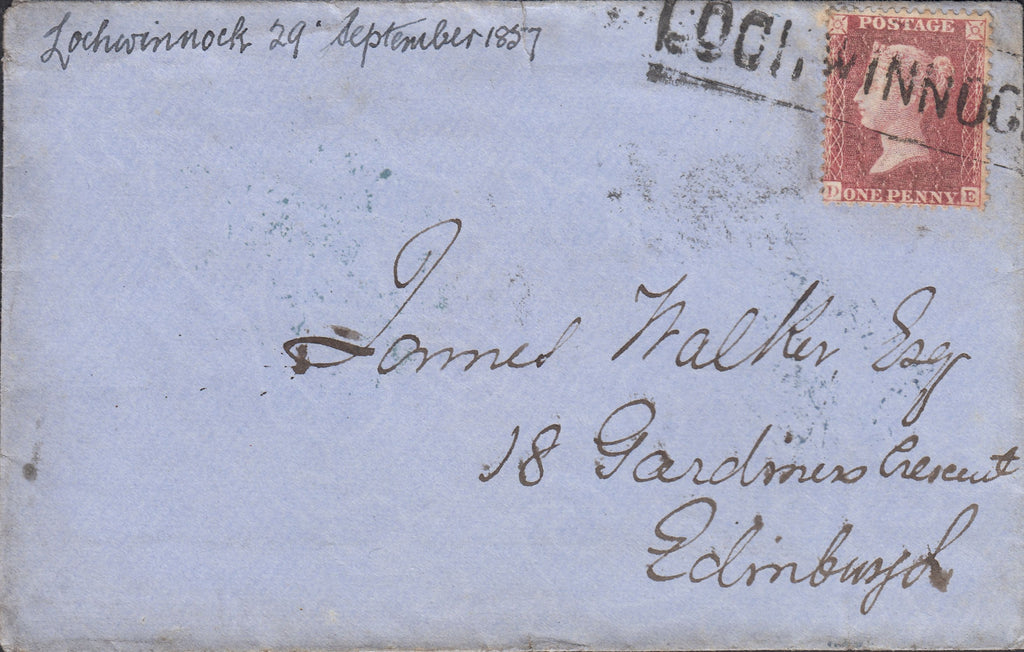 Lochwinnock 29 September 1857
LOCHWINNOC
POSTAGE
D ONE PENNY E
James Walker Esq
18 Gardiners Crescent
Edinburgh